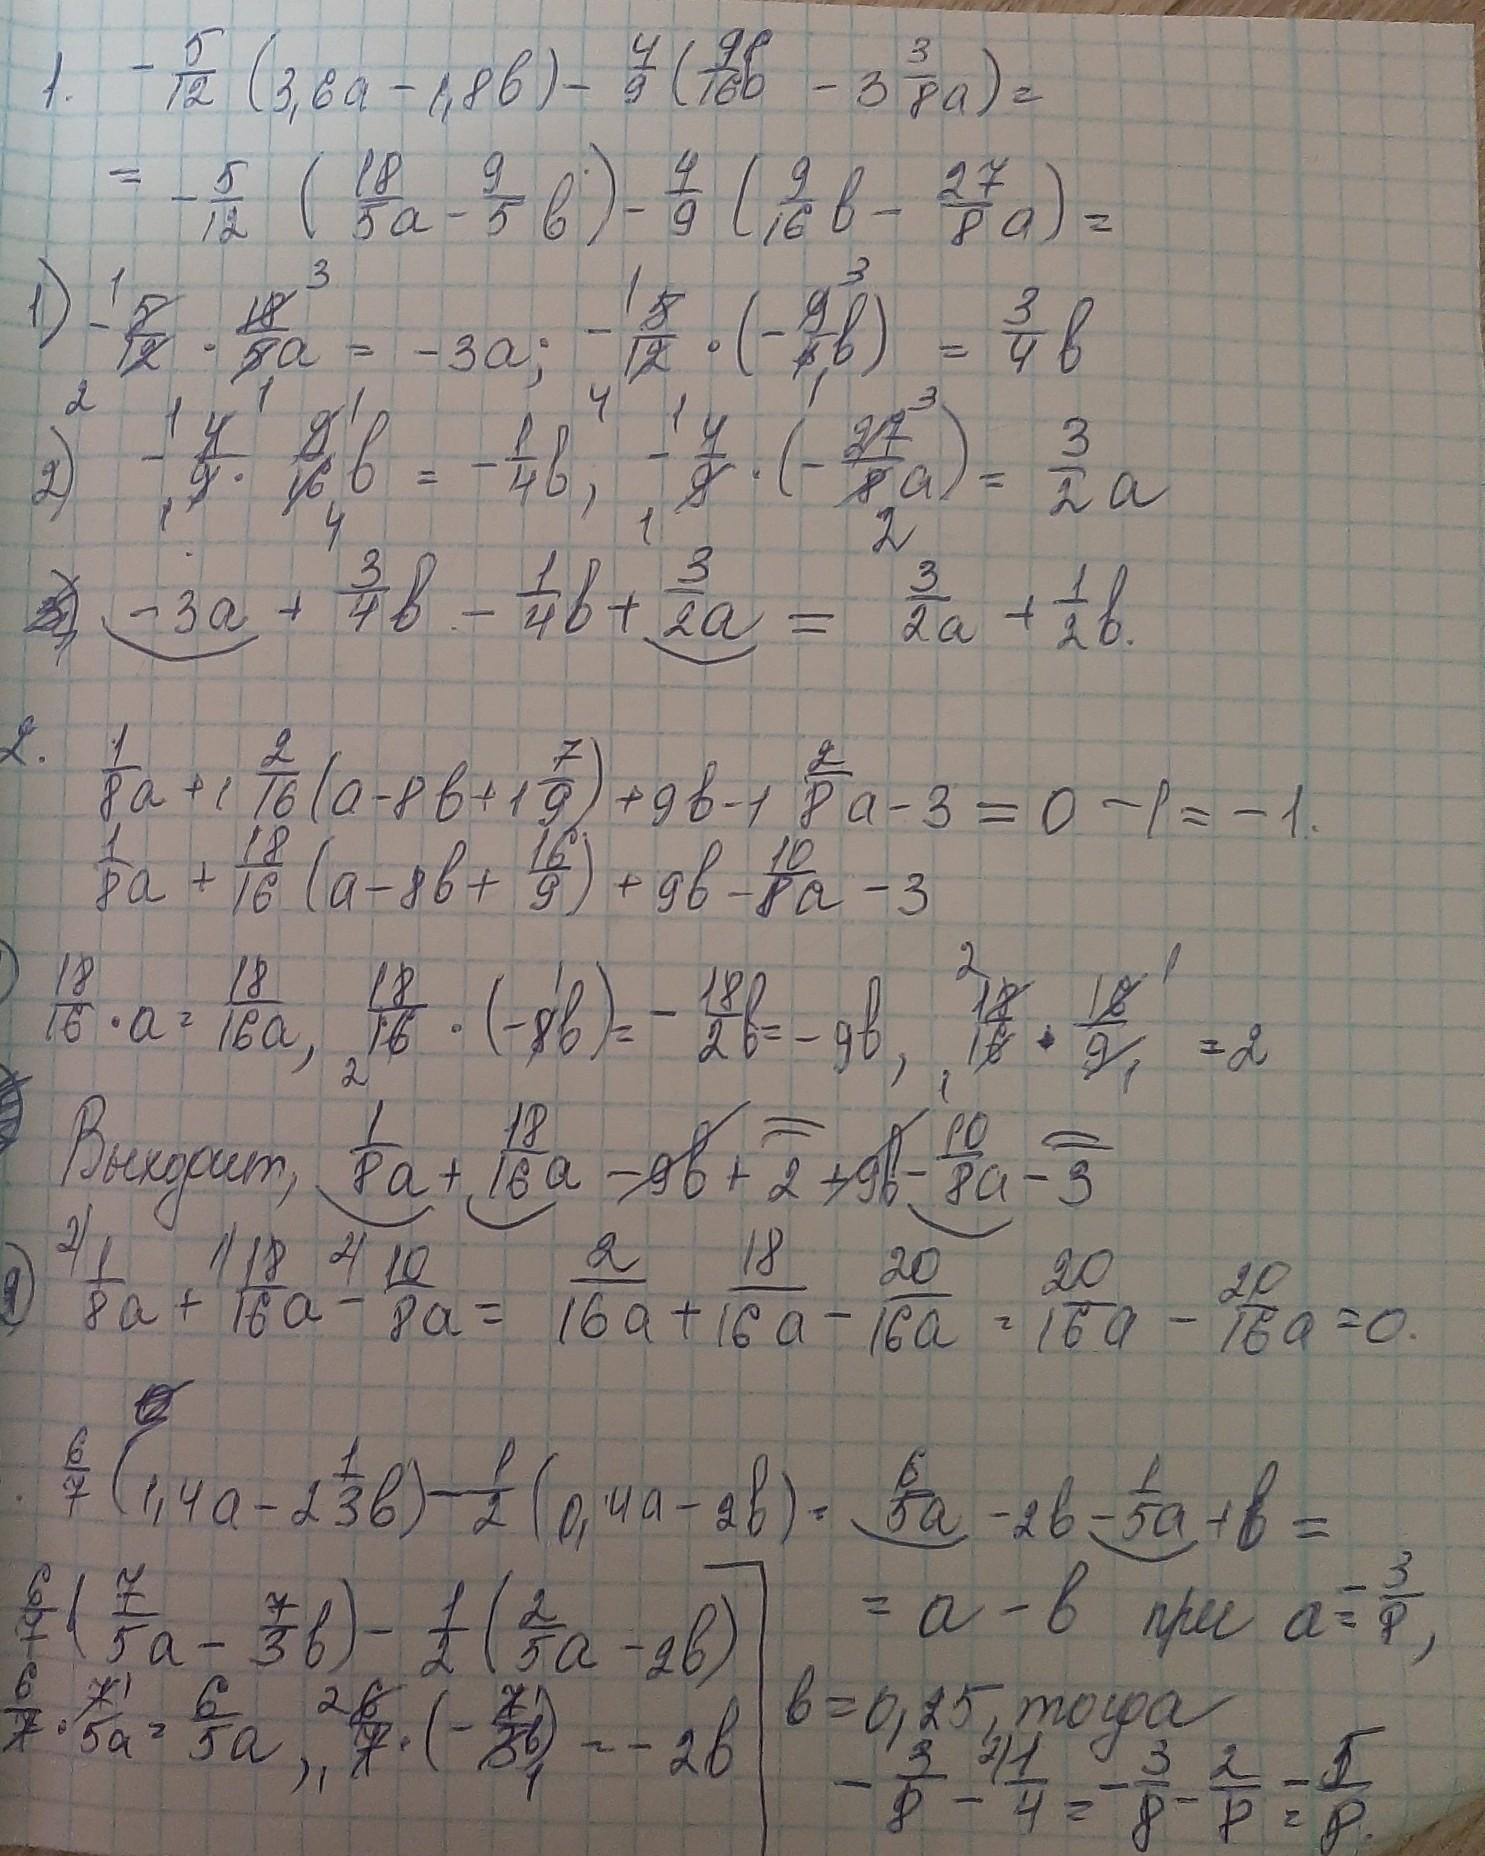 1. - 5/12 (3,6a - 1,8b) - 4/9 (9/16b - 3 3/8a) =
= - 5/12 (18/5a - 9/5b) - 4/9 (9/16b - 27/8a) =
1) - 5/12 · 18/5a = -3a; - 5/12 · (- 9/5b) = 3/4b
2) - 4/9 · 9/16b = - 1/4b, - 4/9 · (- 27/8a) = 3/2a
-3a + 3/4b - 1/4b + 3/2a = 3/2a + 1/2b.
2. 1/8a + 1 2/16 (a - 8b + 1 7/9) + 9b - 1 2/8a - 3 = 0 - 1 = -1.
1/8a + 18/16 (a - 8b + 16/9) + 9b - 10/8a - 3
18/16 · a = 18/16a, 18/16 · (-8b) = - 18/2b = -9b, 18/16 · 16/9 = 2
Выходит, 1/8a + 18/16a - 9b + 2 + 9b - 10/8a - 3
2) 1/8a + 18/16a - 10/8a = 2/16a + 18/16a - 20/16a = 20/16a - 20/16a = 0.
6/7 (1,4a - 2 1/3b) - 1/2 (0,4a - 2b) = 6/5a - 2b - 1/5a + b =
6/7 (7/5a - 7/3b) - 1/2 (2/5a - 2b)
6/7 · 7/5a = 6/5a, 6/7 · (- 7/3b) = -2b
= a - b при a = - 3/8,
b = 0,25, тогда
- 3/8 - 1/4 = - 3/8 - 2/8 = - 5/8.